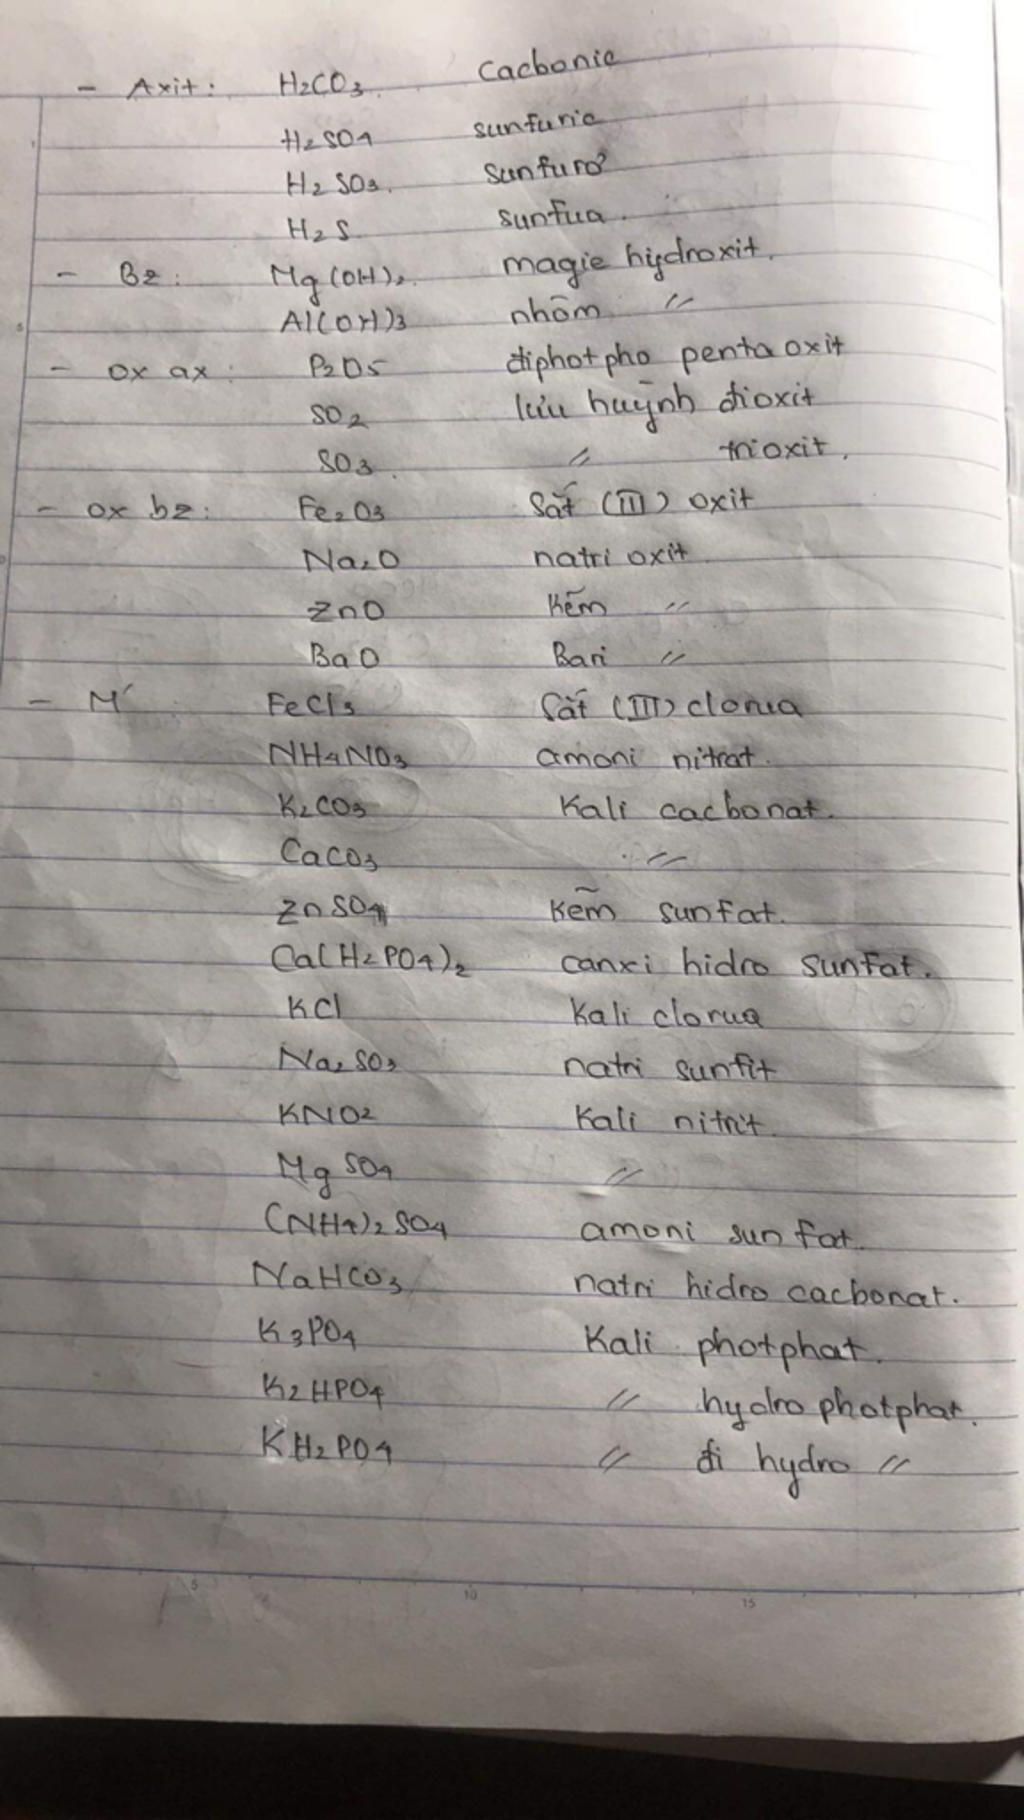 - Axit: H2CO3. Cacbonic
H2SO4 sunfuric
H2SO3. Sunfurơ
H2S sunfua.
- Bz: Mg(OH)2. magie hiđroxit.
Al(OH)3 nhôm "
- Ox ax: P2O5 điphotpho pentaoxit
SO2 lưu huỳnh đioxit
SO3. " trioxit.
- Ox bz: Fe2O3 Sắt (III) oxit
Na2O natri oxit
ZnO Kẽm "
BaO Bari "
- M' FeCl3 Sắt (III) clorua
NH4NO3 amoni nitrat.
K2CO3 Kali cacbonat.
CaCO3 "
ZnSO4 Kẽm sunfat.
Ca(H2PO4)2 canxi hidro sunfat.
KCl Kali clorua
Na2SO3 natri sunfit
KNO2 Kali nitrit.
MgSO4 "
(NH4)2SO4 amoni sunfat.
NaHCO3 natri hidro cacbonat.
K3PO4 Kali photphat.
K2HPO4 " hydro photphat.
KH2PO4 " đi hydro "
5 10 15